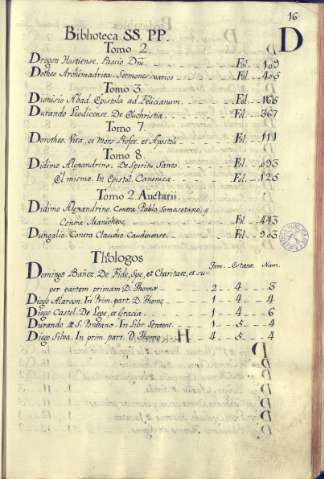 16
D
Biblioteca SS. PP.
Tomo 2.
Drogon Hostiense, Passio Dñi. Fol. 109
Dotheo Archimadrita. Sermones varios Fol. 405
Tomo 3.
Dionisio Abad. Epistola ad Felicianum. Fol. 166
Durando Leodicense. De Euchristia Fol. 367
Tomo 7.
Dorotheo. Vita, et Mors Profet. et Apostol. Fol. 111
Tomo 8.
Didimo Alexandrino. De Spiritu Santo. Fol. 695
El mismo. In Epistol. Canonica. Fol. 125
Tomo 2. Auctarii.
Didimo Alexandrino. Contra Pablo Samosetano, y
Contra Manicheos. Fol. 443
Dungalio Contra Claudio Fol. 903
Thólogos
Tom. Estante. Num.
Domingo Bañez De Fide, Spe, et Charitate, et su-
per partem primam D. Thomæ 2. 4. 3
Diego Alarcon. In Prim. part. D. Thomę 1. 4. 4
Diego Castel. De Lege, et Gracia. 1. 4. 6
Durando a S. In Libr. Sentent. 1. 5. 4
Diego Silva. In prim. part. D. Thomę H 4. 5. 4